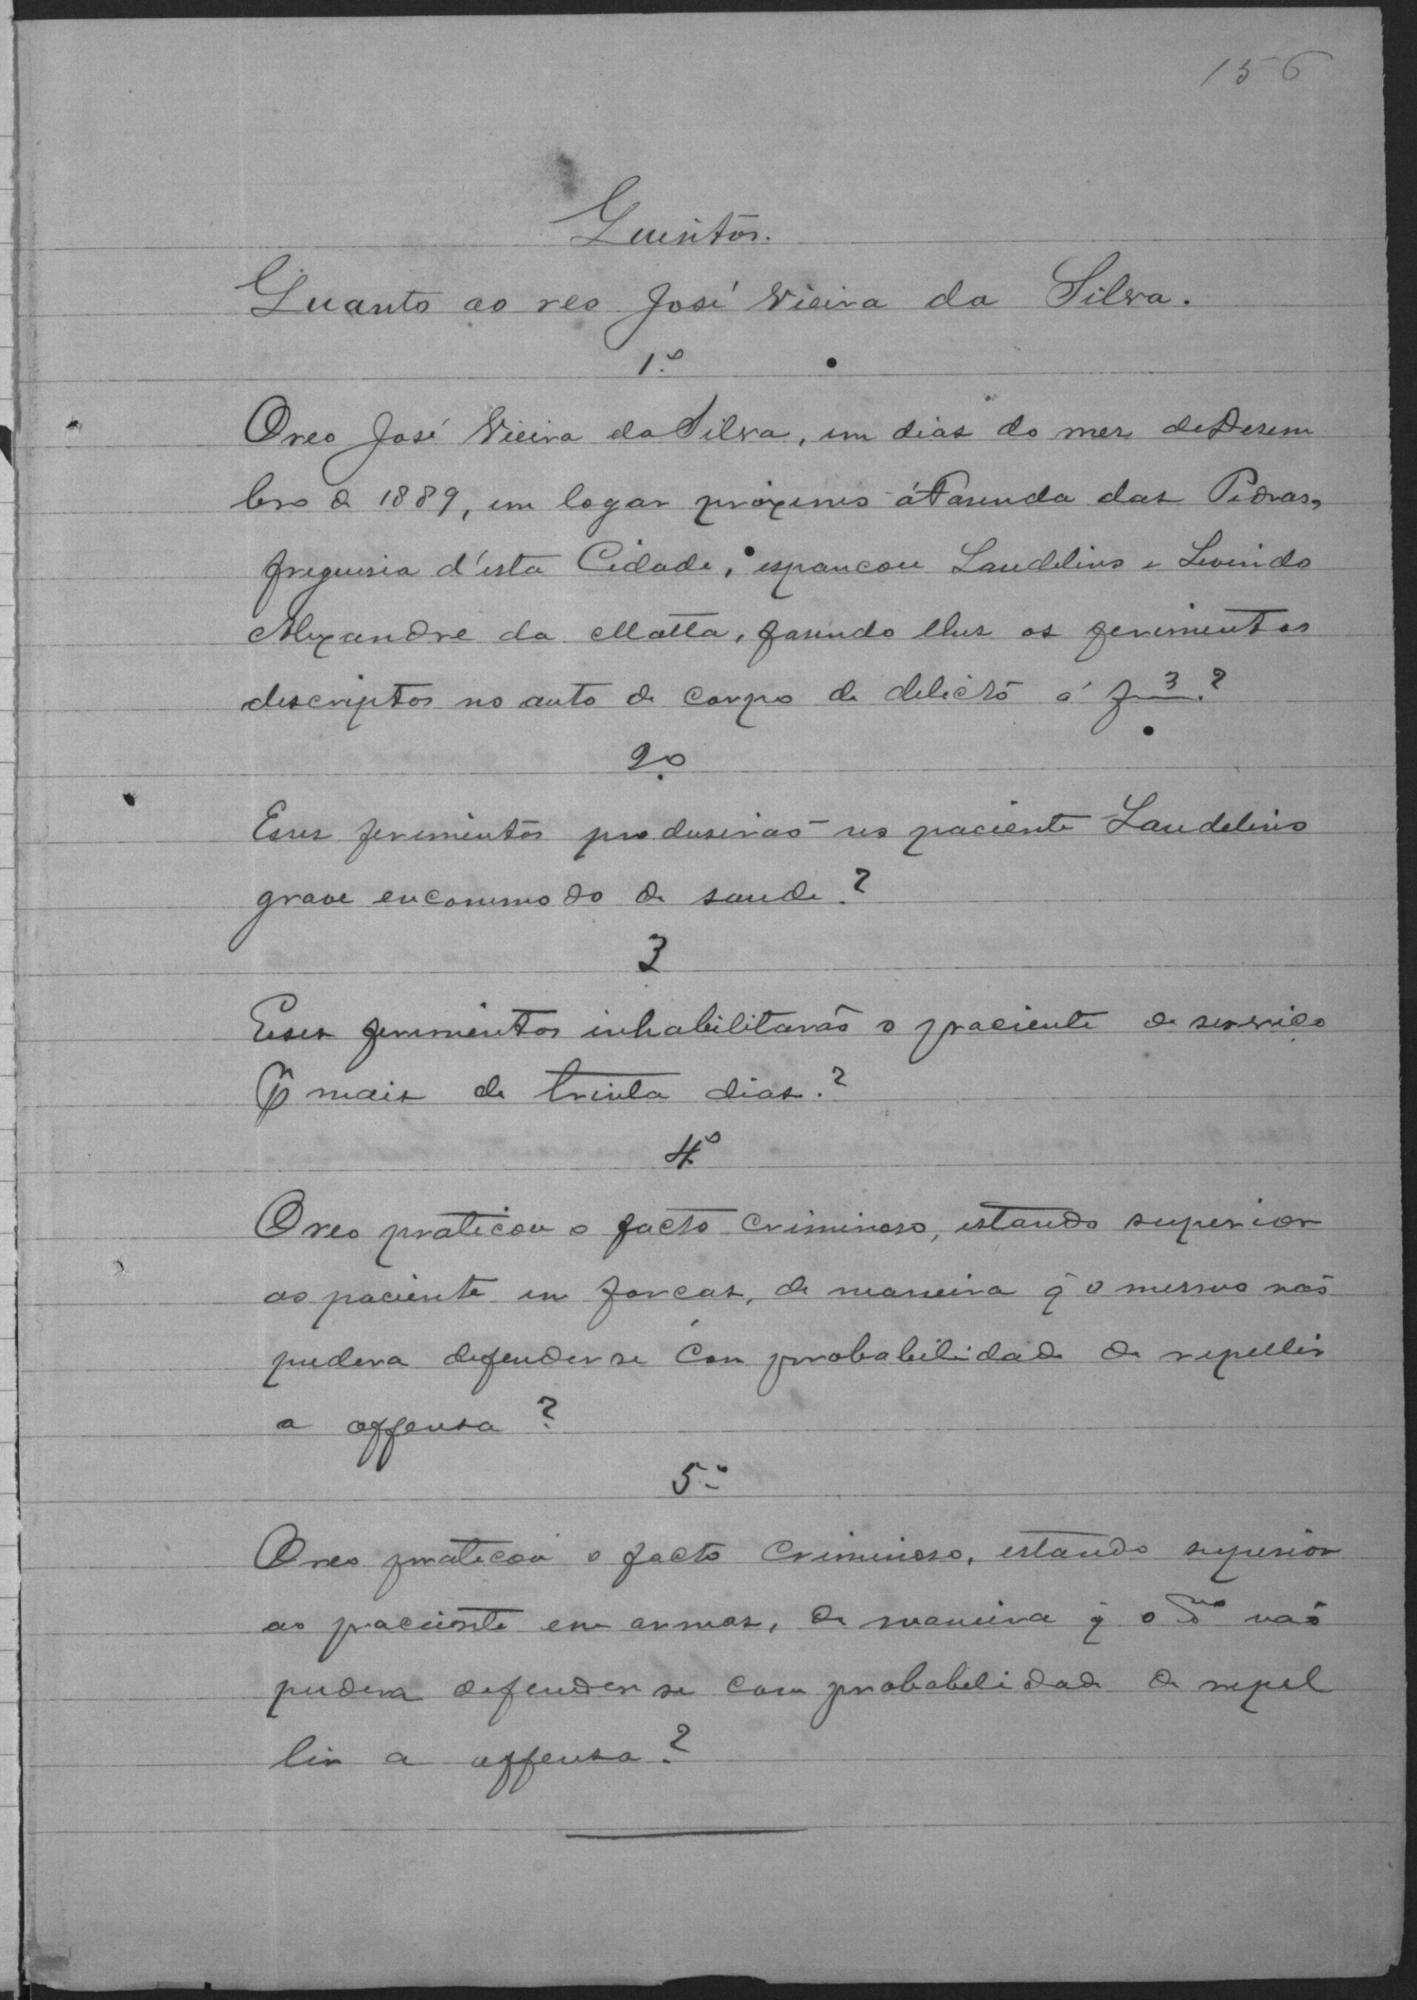 156
Quesitos.
Quanto ao reo José Vieira da Silva.
1.º
O reo José Vieira da Silva, em dias do mez de Dezem
bro de 1889, em logar proximo á Fazenda das Pedras,
freguesia d'esta Cidade, espancou Laudelino e Levindo
Alexandre da Matta, fazendo lhes os ferimentos
descriptos no auto de corpo de delicto á f 3.?
2º
Esses ferimentos produsirão no paciente Laudelino
grave encommodo de saude?
3
Esses ferimentos inhabilitarão o paciente de serviço
p mais de trinta dias.?
4º
O reo praticou o facto criminoso, estando superior
ao paciente em forcas, de maneira q̃ o mesmo não
pudera defender se com probabilidade de repellir
a offensa?
5º
O reo praticou o facto criminoso, estando superior
ao paciente em armas, de maneira q̃ o não
pudera defender se com probabilidade de repel
lir a offensa?